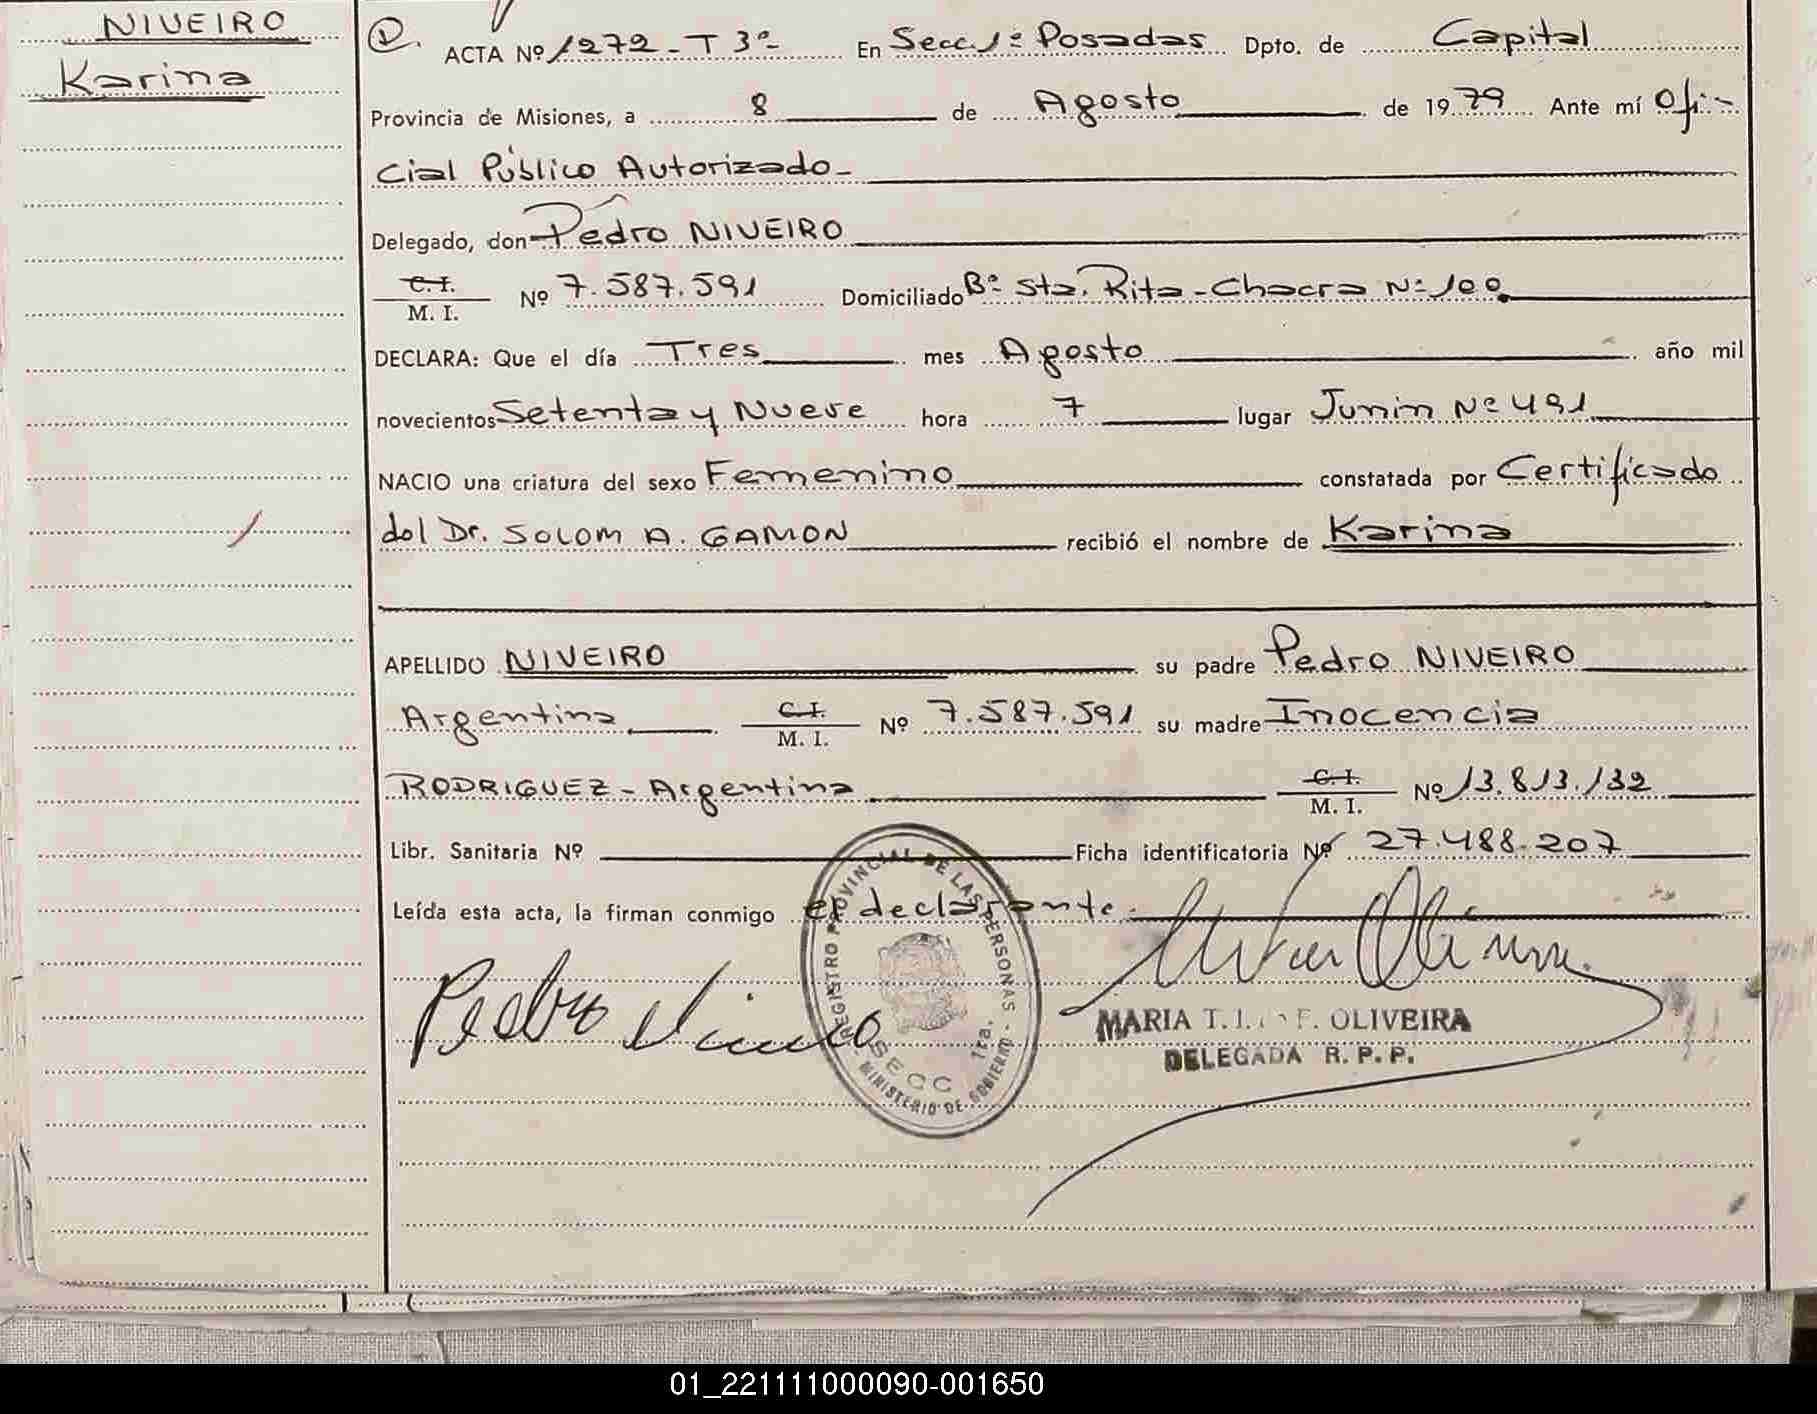 NIVEIRO
Karina
ACTA Nº 1272 - T 3º - En Secc. 1º Posadas Dpto. de Capital
Provincia de Misiones, a 8 de Agosto de 1979 Ante mí Ofi-
cial Público Autorizado -
Delegado, don Pedro NIVEIRO
C. I.
M. I. Nº 7.587.591 Domiciliado Bº Sta. Rita - Chacra Nº 100
DECLARA: Que el día Tres mes Agosto año mil
novecientos Setenta y Nueve hora 7 lugar Junin Nº 491
NACIO una criatura del sexo Femenino constatada por Certificado
del Dr. SOLOM A. GAMON recibió el nombre de Karina
APELLIDO NIVEIRO su padre Pedro NIVEIRO
Argentina C. I.
M. I. Nº 7.587.591 su madre Inocencia
RODRIGUEZ - Argentina C. I.
M. I. Nº 13.813.132
Libr. Sanitaria Nº Ficha identificatoria Nº 27.488.207
Leída esta acta, la firman conmigo el declarante.
Pedro Niveiro
REGISTRO PROVINCIAL DE LAS PERSONAS - MINISTERIO DE GOBIERNO -
SECC 1ra.
MARIA T. F. OLIVEIRA
DELEGADA R. P. P.
01_221111000090-001650